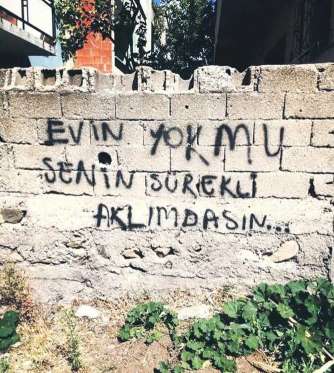 EVİN YOKMU
SENİN SÜREKLİ
AKLIMDASIN...